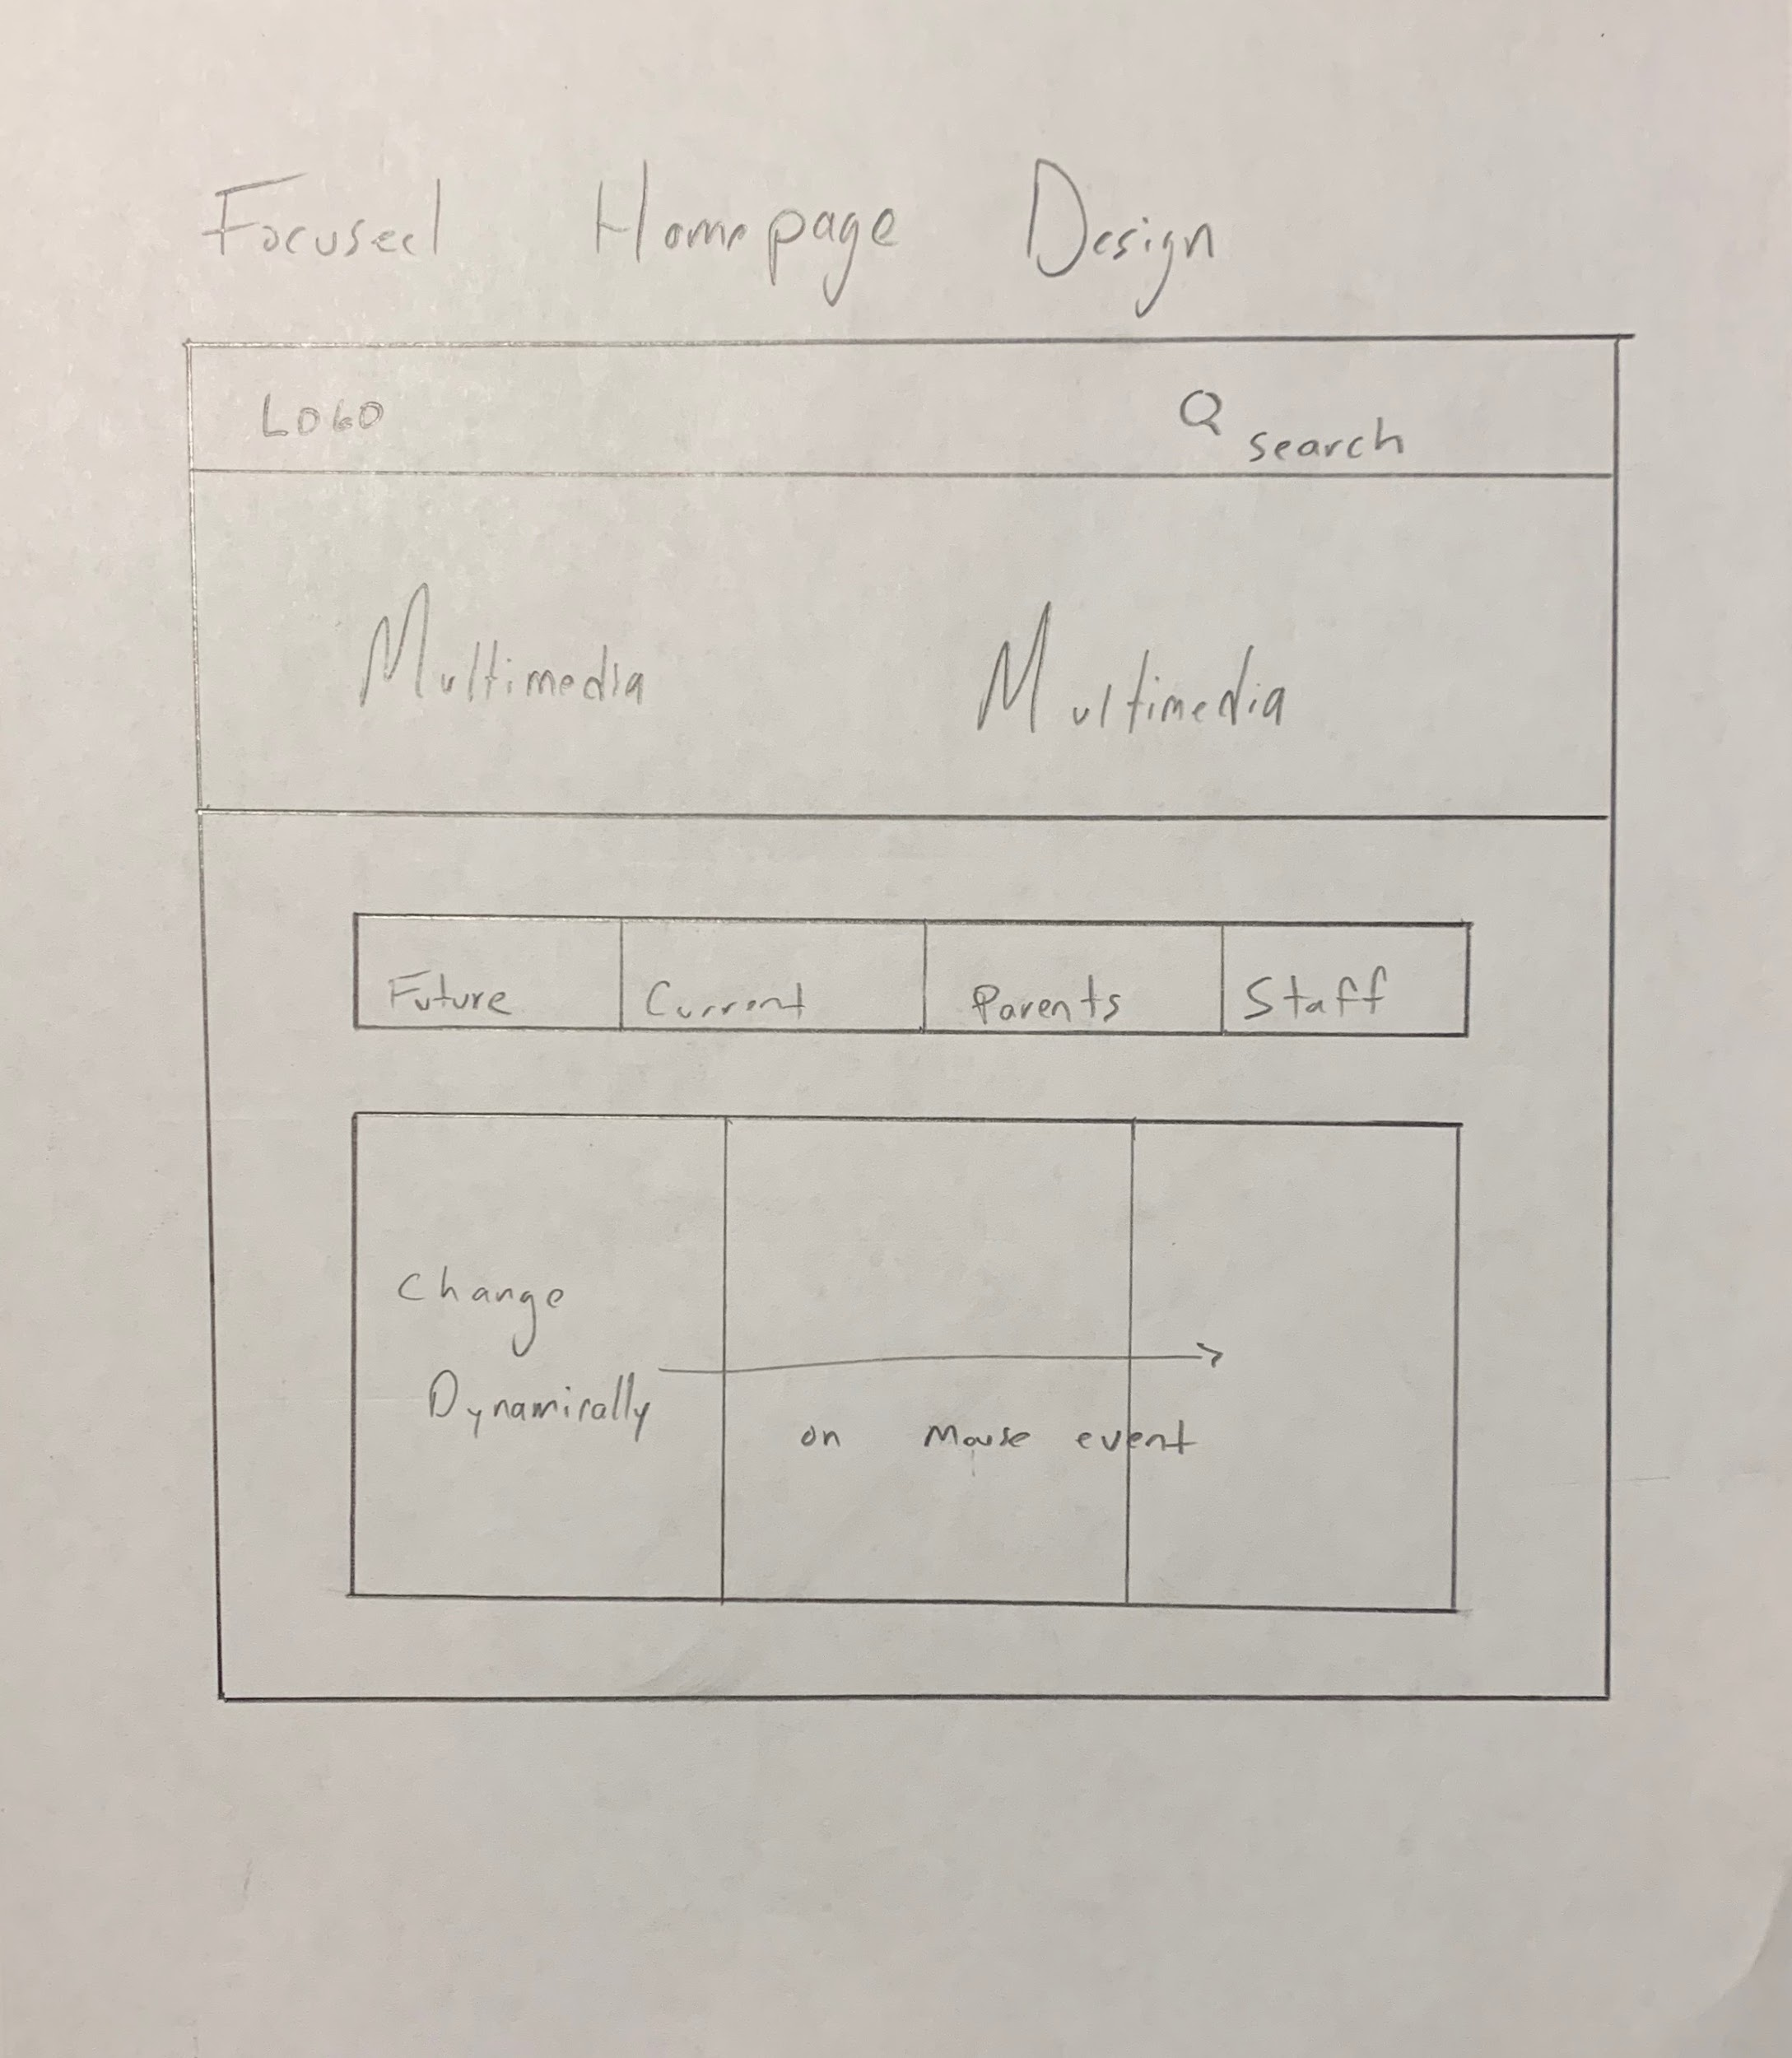 Focused Homepage Design
LOGO
search
Multimedia Multimedia
Future Current Parents Staff
Change
Dynamically
on Mouse event